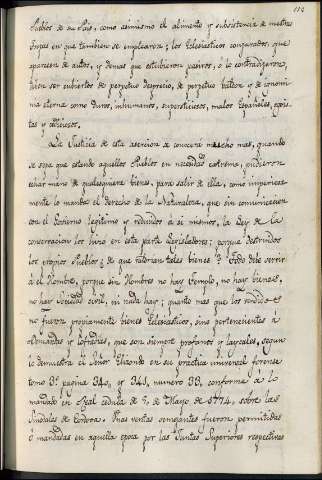 112
Pueblos de su Pais, como asimismo el alimento y subsistencia de nuestras
tropas en que tambien se emplearon; los Eclesiasticos conjurados, que
aparecen de autos, y demas que estubieron pasivos, ó lo contradigeron,
deben ser cubiertos de perpetuo desprecio, de perpetuo baldon y de ignomi
nia eterna como duros, inhumanos, supersticiosos, malos Españoles, egois
tas y codiciosos.
La Justicia de esta asercion se conocera mucho mas, quando
se sepa que estando aquellos Pueblos en necesidad extrema, pudieron
echar mano de qualesquiera bienes, para salir de ella, como imperiosa
mente lo manda el derecho de la Naturaleza, que sin comunicacion
con el Govierno legitimo y reducidos a si mismos, la Ley de la
conservacion los hizo en esta parte Legisladores; porque destruidos
los propios Pueblos ¿ de que valdrian tales bienes? Todo debe servir
á el Hombre, porque sin Hombres no hay templo, no hay bienes,
no hay Sociedad civil, ni nada hay; quanto mas que los vendidos
no fueron propiamente bienes Eclesiasticos, sino pertenecientes á
Hermandades y Cofradias, que son siempre profanos y laycales, segun
lo demuestra el Señor Elizondo en su practica universal forense
tomo 3º pagina 340, y 341, numero 33, conforme á lo
mandado en Real cedula de 5, de Mayo de 1774, sobre las
Sindales de Cordova. Unas ventas semejantes fueron permitidas
ó mandadas en aquella epoca por las Juntas Superiores respectivas